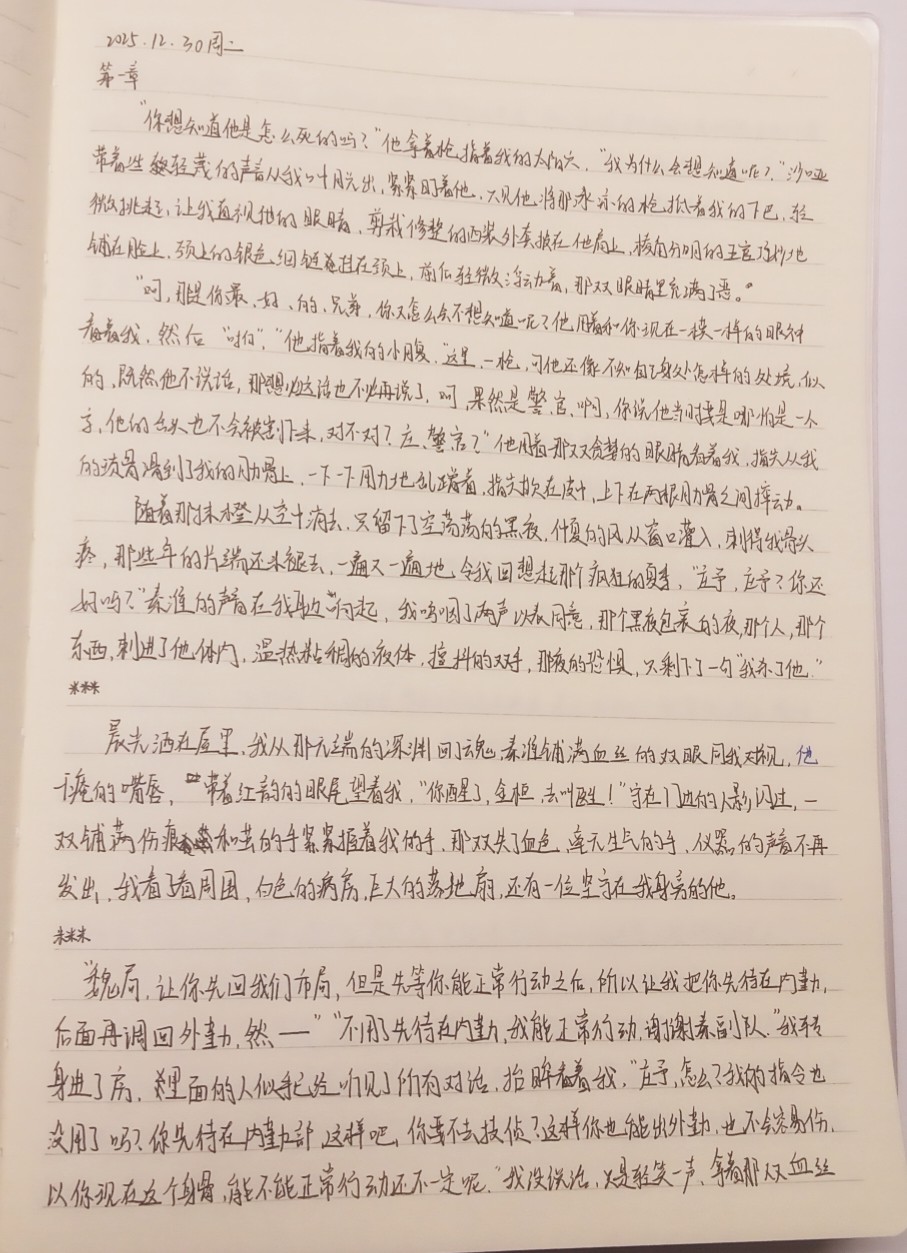 2025.12.30周二
第一章
“你想知道他是怎么死的吗？”他拿着枪,指着我的太阳穴，“我为什么会想知道呢？”沙哑
带着些轻蔑的声音从我口中月兑出，紧紧盯着他，只见他将那冰凉的枪抵着我的下巴，轻
微挑起，让我直视他的眼睛，剪裁修整的西装外套披在他肩上，棱角分明的五官巧妙地
铺在脸上，颈上的银色细链挂在颈上，前后轻微浮动着，那双眼睛里充满了恶。
“呵，那是你最、好、的、兄弟，你又怎么会不想知道呢？他用着和你现在一模一样的眼神
看着我，然后“啪”，”他指着我的小腹，“这里，一枪，可他还像不知自己身处怎样的处境，似
的，既然他不说话，那想必这话也不必再说了，呵，果然是警、官、啊，你说他当时要是哪怕是一个
字，他的舌头也不会被割下来，对不对？庄、警官？”他用着那双贪婪的眼睛看着我，指尖从我
的 滑到了我的肋骨上，一下一下用力地乱蹭着，指尖 在皮 ，上下在两根肋骨之间 动。
随着那抹 从空中消去，只留下了空荡荡的黑夜，仲夏的风从窗口灌入，刺得我骨头
疼，那些年的片端还未褪去，一遍又一遍地，令我回想起那个疯狂的夏季，“庄予，庄予？你还
好吗？”秦淮的声音在我耳边响起，我呜咽了两声以表同意，那个黑夜包裹的夜，那个人，那个
东西，刺进了他体内，温热粘稠的液体，擅抖的双手，那夜的恐惧，只剩下了一句“我杀了他。”
***
晨光洒在屋里，我从那无端的深渊回了魂，秦淮铺满血丝的双眼同我对视，他
干瘪的嘴唇，带着红韵的眼尾望着我，“你醒了，金桓，去叫医生！”守在门边的人影闪过，一
双铺满伤痕和茧的手紧紧握着我的手，那双失了血色，毫无生气的手，仪器的声音不再
发出，我看了看周围，白色的病房，巨大的落地扇，还有一位坚守在我身旁的他。
***
“魏局，让你先回我们市局，但是先等你能正常行动之后，所以让我把你先待在内勤，
后面再调回外勤，然——”“不用了先待在内勤，我能正常行动，谢谢秦副队。”我转
身进了房，里面的人似乎已经听见了所有对话，抬眸看着我，“庄予，怎么？我的指令也
没用了吗？你先待在内勤部，这样吧，你要不去技侦？这样你也能出外勤，也不会容易伤，
以你现在这个身骨，能不能正常行动还不一定呢。”我没说话，只是轻笑一声，拿着那双血丝